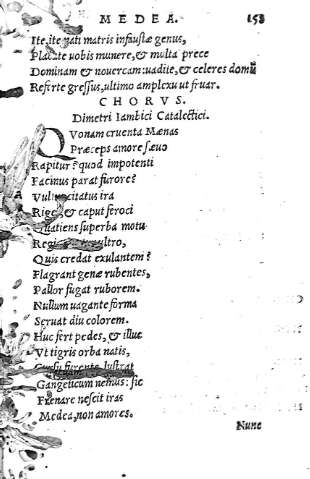 MEDEA. 158
Ite, ite nati matris infaustæ genus,
Placate uobis munere, & multa prece
Dominam & nouercam: uadite, & celeres domũ
Referte gressus, ultimo amplexu ut fruar.
CHORVS.
Dimetri Iambici Catalectici.
QVonam cruenta Mænas
Præceps amore sæuo
Rapitur? quod impotenti
Facinus parat furore?
citatus ira
Riget, & caput feroci
Quatiens superba motu
ultro,
Quis credat exulantem?
Flagrant genæ rubentes,
Pallor fugat ruborem.
Nullum uagante forma
Seruat diu colorem.
Huc fert pedes, & illuc
Vt tigris orba natis,
Cursu furente lustrat
Gangeticum nemus: sic
Frenare nescit iras
Medea, non amores.
Nunc